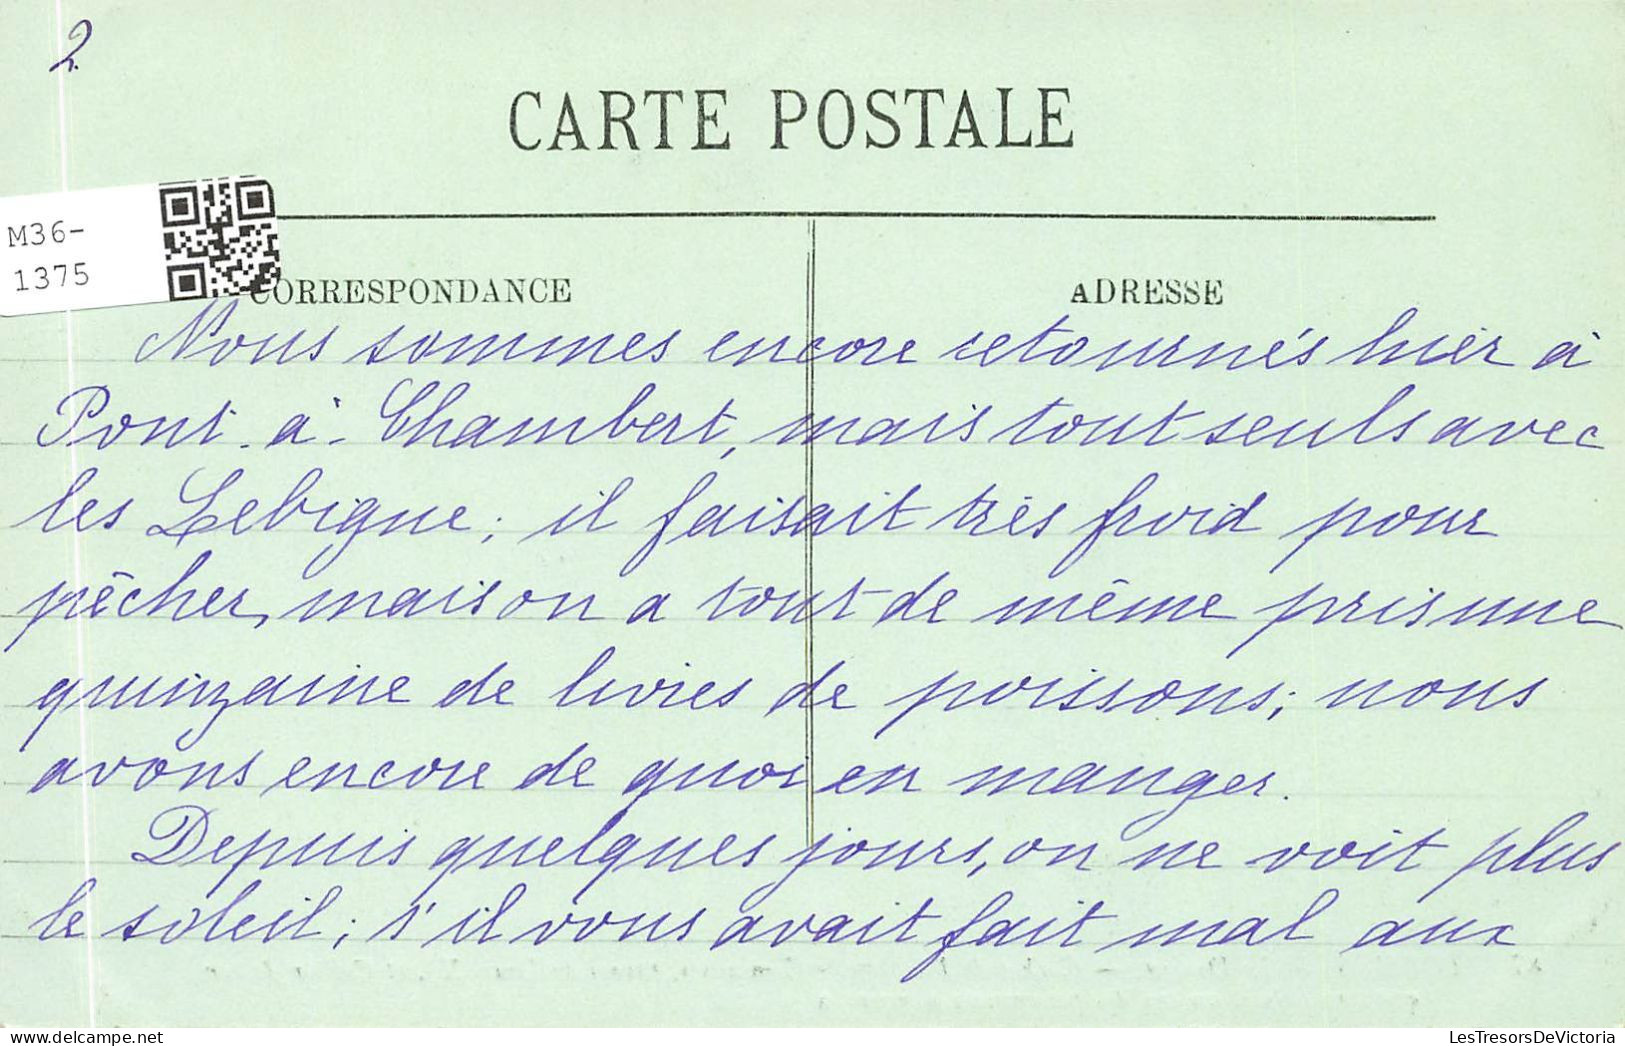 2
CARTE POSTALE
M36-
1375
CORRESPONDANCE
ADRESSE
Nous sommes encore retournés hier à
Pont-à-Chambert, mais tout seuls avec
les Lebigue; il faisait très froid pour
pêcher, mais on a tout de même pris une
quinzaine de livres de poissons; nous
avons encore de quoi en manger.
Depuis quelques jours, on ne voit plus
le soleil; s'il vous avait fait mal aux
LesTresorsDeVictoria
www.delcampe.net